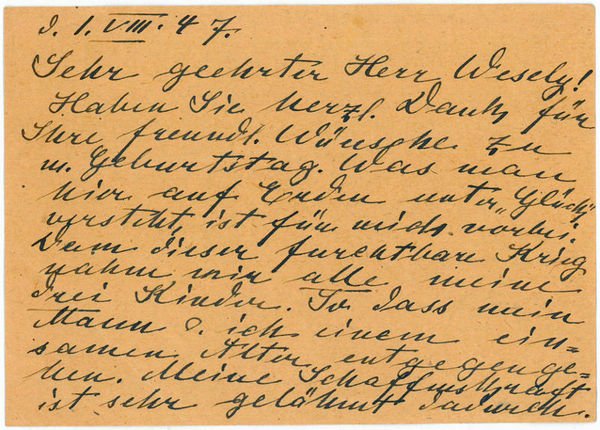 d. 1. VIII. 47.
Sehr geehrter Herr Wesely!
Haben Sie herzl. Dank für
Ihre freundl. Wünsche zu
m. Geburtstag. Was man
hier auf Erden unter „Glück“
versteht, ist für mich vorbei.
Denn dieser furchtbare Krieg
nahm mir alle meine
drei Kinder. So dass mein
Mann u. ich einem ein=
samen Alter entgegenge=
hen. Meine Schaffenskraft
ist sehr gelähmt dadurch.